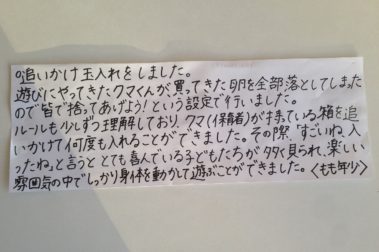 ○追いかけ玉入れをしました。
遊びにやってきたクマくんが買ってきた卵を全部落としてしまった
ので皆で捨ってあげよう!という設定で行いました。
ルールも少しずつ理解しており、クマ(保育者)が持っている箱を追
いかけて何度も入れることができました。その際、「すごいね、入
ったね」と言うととても喜んでいる子どもたちが多く見られ、楽しい
雰囲気の中でしっかり身体を動かして遊ぶことができました。〈もも年少〉